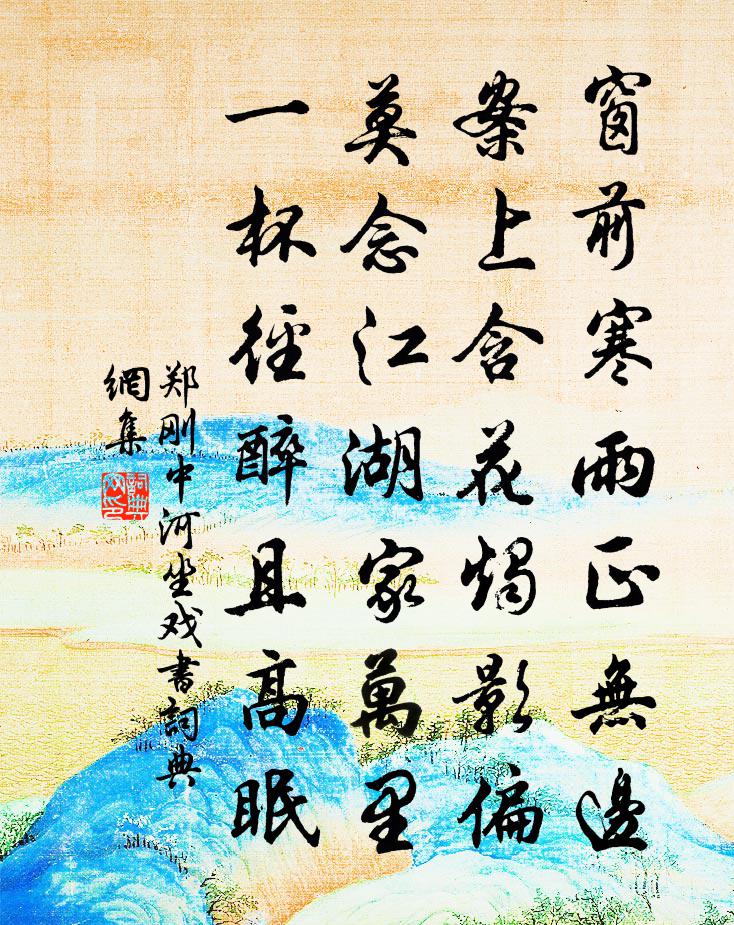 窗前寒雨正無邊
案上含花燭影偏
莫念江湖家萬里
一杯徑醉且高眠
郑刚中河坐戏書詞典
網集
詞典